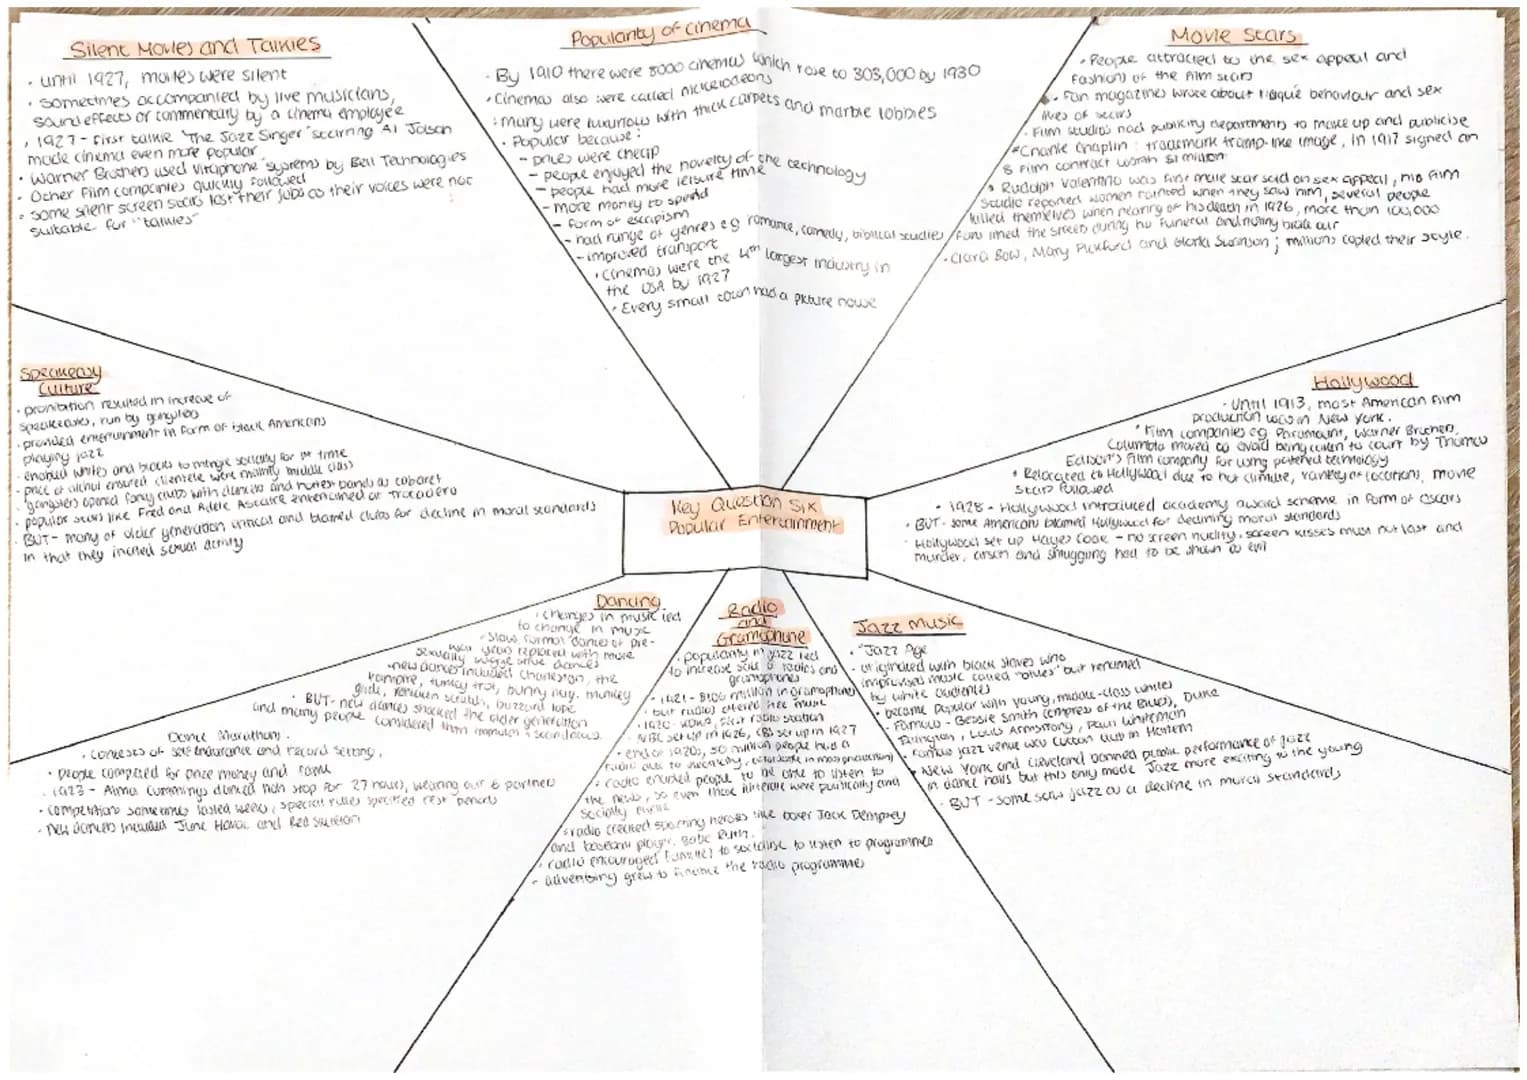 Silent Movies and Talkies
· Until 1927, movies were silent
· sometimes accompanied by live musicians,
sound effects or commentary by a cinema employee
· 1927 - first talkie 'The Jazz Singer' starring Al Jolson
made cinema even more popular
· Warner Brothers used vitaphone systems by Bell Technologies
· Other film companies quickly followed
· some silent screen stars lost their jobs as their voices were not
suitable for "talkies"
Popularity of cinema
· By 1910 there were 8000 cinemas which rose to 303,000 by 1930
· Cinemas also were called nickelodeons
· many were luxurious with thick carpets and marble lobbies
· Popular because:
- prices were cheap
- people enjoyed the novelty of the technology
- people had more leisure time
- more money to spend
- form of escapism
- had range of genres eg romance, comedy, biblical studies
- improved transport
· Cinemas were the 4th largest industry in
the USA by 1927
· Every small town had a picture house
Movie Stars
· People attracted to the sex appeal and
fashion of the film stars
· Fan magazines wrote about risqué behaviour and sex
lives of stars
· Film studios had publicity departments to make up and publicise
· Charlie Chaplin : trademark tramp-like image, in 1917 signed an
8 film contract worth $1 million
· Rudolph Valentino was first male star sold on sex appeal, his film
studio reported women fainted when they saw him, several people
killed themselves when hearing of his death in 1926, more than 100,000
fans lined the streets during his funeral
· Clara Bow, Mary Pickford and Gloria Swanson ; millions copied their style.
Speakeasy
Culture
· prohibition resulted in increase of
speakeasies, run by gangsters
· provided entertainment in form of black Americans
playing jazz
· enabled whites and blacks to mingle socially for 1st time
· price of alchol ensured clientele were mainly middle class
· gangsters opened fancy clubs with dancers and hottest bands as cabaret
· popular stars like Fred and Adele Astaire entertained at Trocadero
· BUT - many of older generation critical and blamed clubs for decline in moral standards
in that they incited sexual activity
Key Question Six
Popular Entertainment
Hollywood
· Until 1913, most American film
production was in New York.
· Film companies eg Paramount, Warner Brothers,
Columbia moved to avoid being taken to court by Thomas
Edison's film company for using patened technology
· Relocated to Hollywood due to hot climate, variety of locations, movie
stars followed
· 1928 - Hollywood introduced academy award scheme in form of Oscars
· BUT - some Americans blamed Hollywood for declining moral standards
· Hollywood set up Hayes Code - no screen nudity, screen kisses must not last and
murder, arson and smuggling had to be shown as evil
Dancing
· changes in music led
to change in music
· slow, formal dances of pre-
war years replaced with more
sexually suggestive dances
· new dances included Charleston, the
vampire, turkey trot, bunny hug, monkey
glide, chicken scratch, buzzard lope
· BUT - new dances shocked the older generation
and many people considered them impure + scandalous.
Dance Marathons.
· contests of self endurance and record setting.
· people competed for prize money and fame
· 1923 - Alma Cummings danced non stop for 27 hours, wearing out 6 partners
· competitions sometimes lasted weeks, special rules specified rest periods
· new dancers included June Havoc and Red Skelton
Radio
and
Gramophone
· popularity in jazz led
to increase sale of radios and
gramophones
· 1921 - $106 million in gramophones
but radios offered free music
· 1920 - KDKA, first radio station
· NBC set up in 1926, CBS set up in 1927
· end of 1920s, 50 million people had a
radio due to electricity, mass production
· radio enabled people to be able to listen to
the news, so even those illiterate were politically and
socially
· radio created sporting heroes like boxer Jack Dempsey
and baseball player Babe Ruth.
· radio encouraged families to socialise to listen to programmes
· advertising grew to finance the radio programmes
Jazz Music
· "Jazz Age"
· originated with black slaves who
improvised music called "blues" but renamed
by white audiences
· became popular with young, middle-class whites
· Famous - Bessie Smith (empress of the Blues), Duke
Ellington, Louis Armstrong, Paul Whiteman
· Famous jazz venue was Cotton club in Harlem
· New York and Cleveland banned public performance of jazz
in dance halls but this only made Jazz more exciting to the young
· BUT - some saw jazz as a decline in moral standards